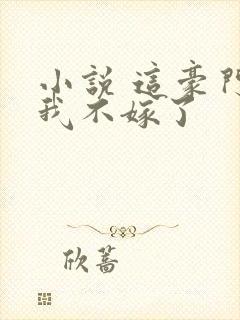 小說 這豪門
我不嫁了
欣蕎